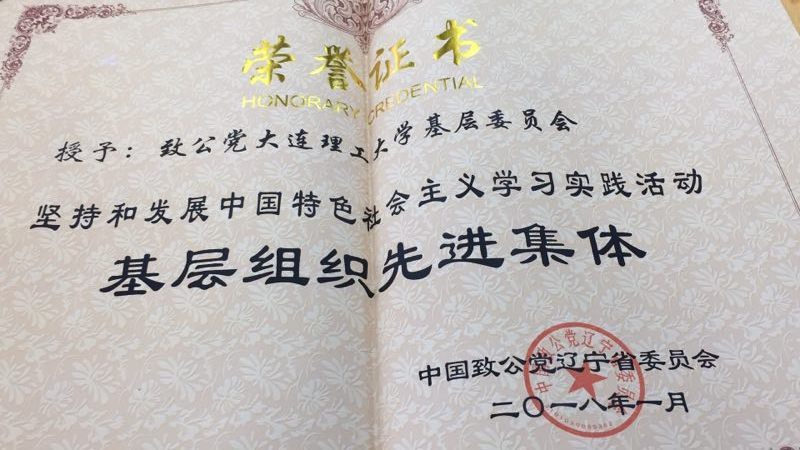 荣誉证书
HONORARY CREDENTIAL
授予：致公党大连理工大学基层委员会
坚持和发展中国特色社会主义学习实践活动
基层组织先进集体
中国致公党辽宁省委员会
二〇一八年一月